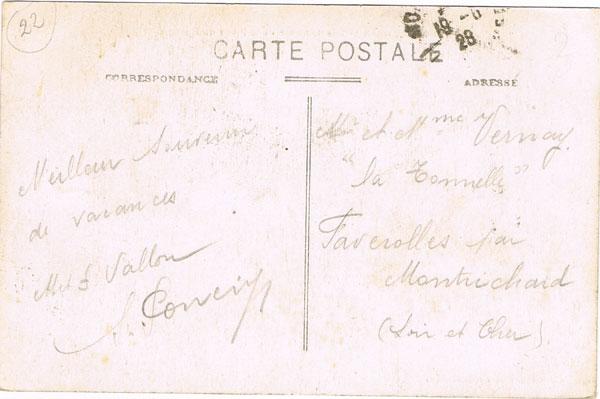 22
CARTE POSTALE
CORRESPONDANCE
ADRESSE
18 - 6
28
Meilleur Souvenir
de vacances
Vallon
Mr et Mme Vernay
"la Tonnelle"
Faverolles par
Montrichard
(Loir et Cher)